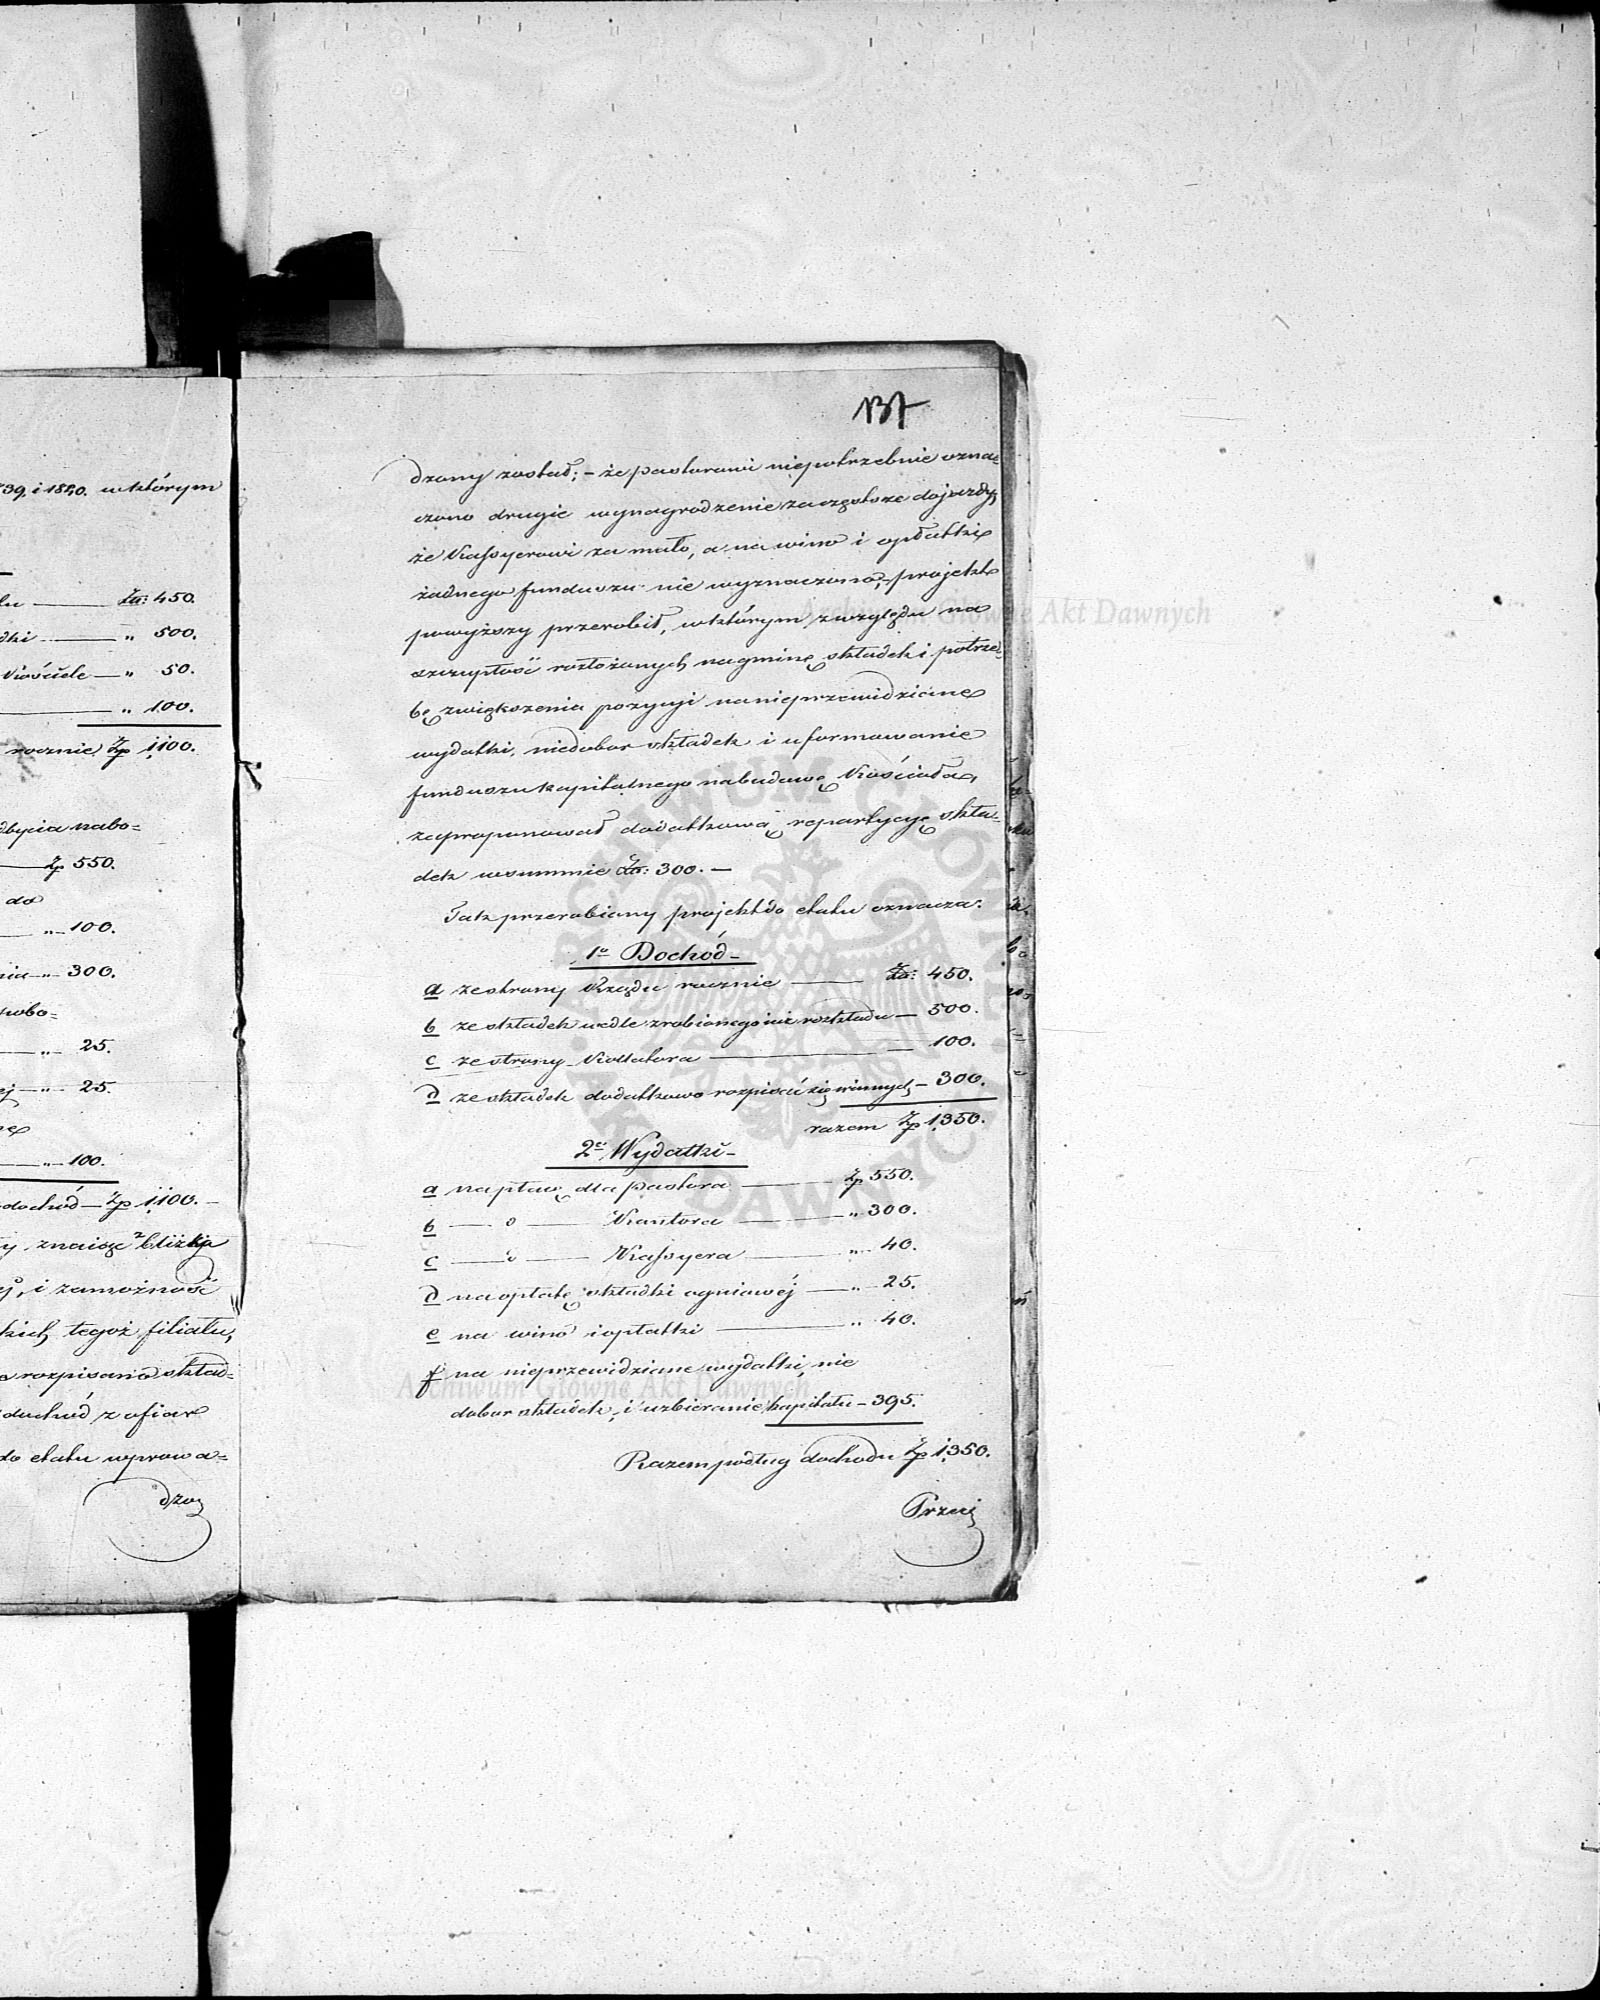 39. i 1840. w którym
Zło: 450.
dki — „ 500.
Kościele — „ 50.
— „ 100.
rocznie Zp 1,100.
dbycia nabo=
— Zp 550.
do
— „ — 100.
nia — „ — 300.
— „ — 25.
— „ — 25.
— „ — 100.
dochód — Zp 1,100. —
znając z blizka
i zamożność
kich tegoż filiału,
rozpisano skład=
dochód z ofiar
do etatu wprowa=
dzo
137
dzony został; – że pastorowi niepotrzebnie ozna=
czono drugie wynagrodzenie za częstsze dojazdy,
że Kassyerowi za mało, a na wino i opłatki
żadnego funduszu nie wyznaczono, – projekt
powyższy przerobił, w którym z względu na
szczupłość rozłożonych na gminę składek i potrze=
bę zwiększenia pozycyi na nieprzewidziane
wydatki, niedobor składek i uformowanie
funduszu kapitalnego na budowę Kościoła,
zaproponował dodatkową repartycyę skła=
dek w summie Zło: 300. —
Tak przerobiony projekt do etatu oznacza:
1o Dochód –
a ze strony Rządu rocznie — Zło: 450.
b ze składek wedle zrobionego już rozkładu — 500.
c ze strony Kollatora — 100.
d ze składek dodatkowo rozpisać się winnych — 300.
razem Zp 1,350.
2o Wydatki –
a na płacę dla Pastora — Zp 550.
b — o — Kantora — „ 300.
c — o — Kassyera — „ — 40.
d na opłatę składki ogniowéj — „ — 25.
e na wino i opłatki — „ 40.
f na nieprzewidziane wydatki, nie
dobor składek, i uzbieranie kapitału — 395.
Razem podług dochodu Zp 1,350.
Przeci